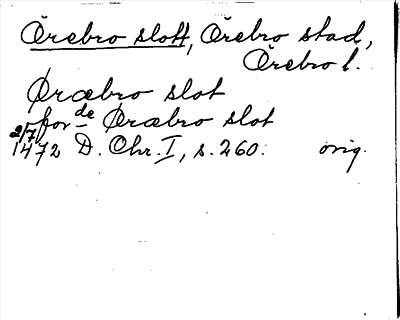 Örebro slott, Örebro stad,
Örebro l.
Øræbro slot
for de Øræbro slot
2/7 1472 D. Chr. I, s. 260. orig.